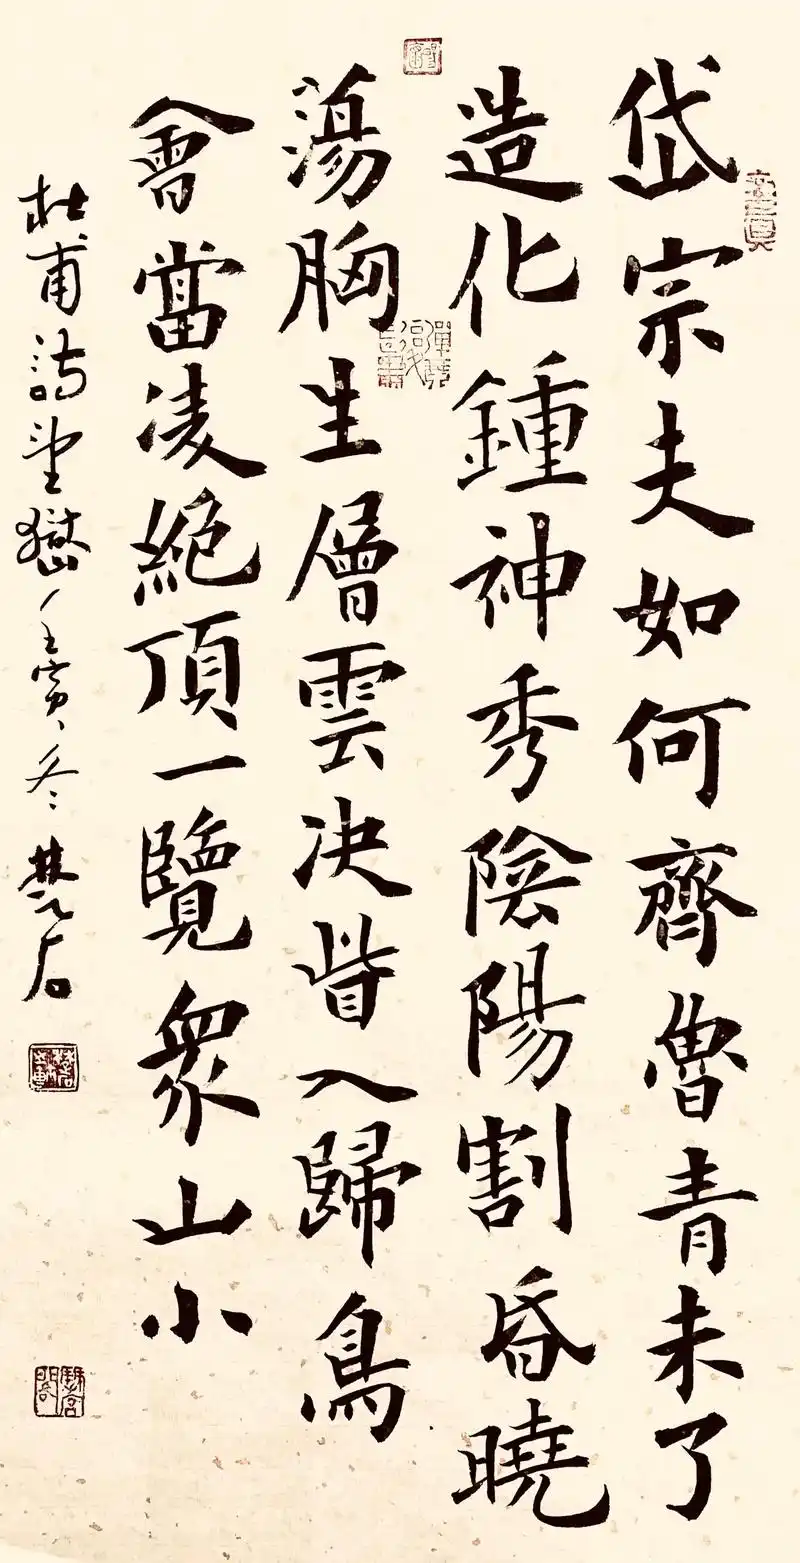 岱宗夫如何齊魯青未了
造化鍾神秀陰陽割昏曉
蕩胸生層雲決眥入歸鳥
會當凌絕頂一覽衆山小
杜甫詩望嶽壬寅冬楚石